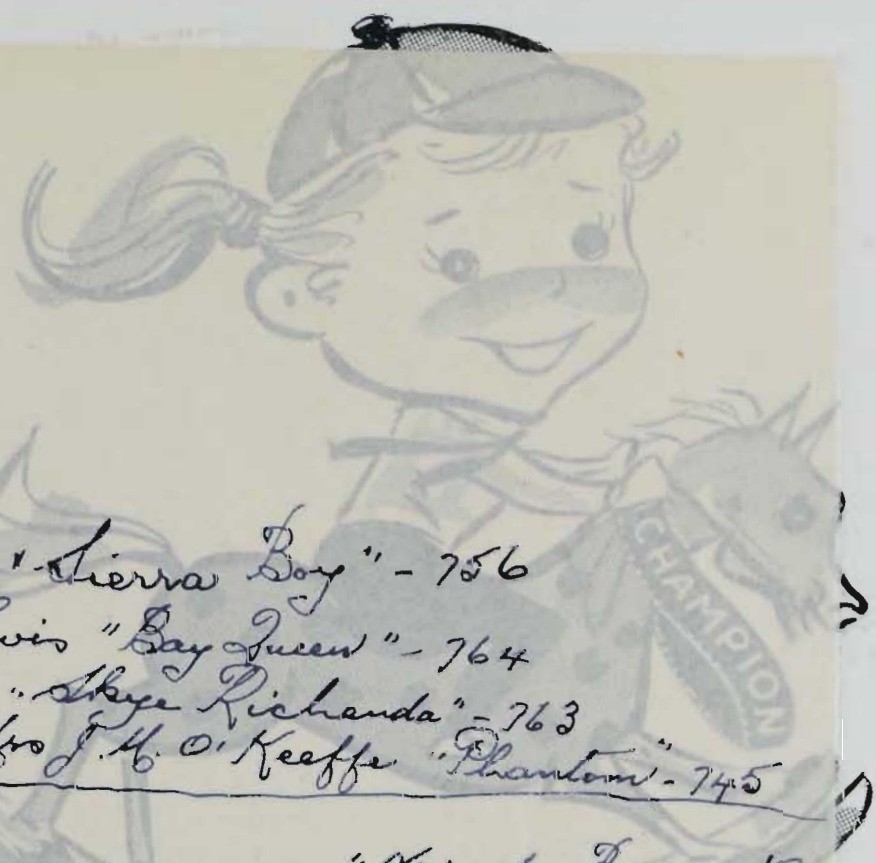 CHAMPION
"Sierra Boy" - 756
"Bay Queen" - 764
"Skye Richanda" - 763
J. M. O'Keeffe "Phantom" - 745